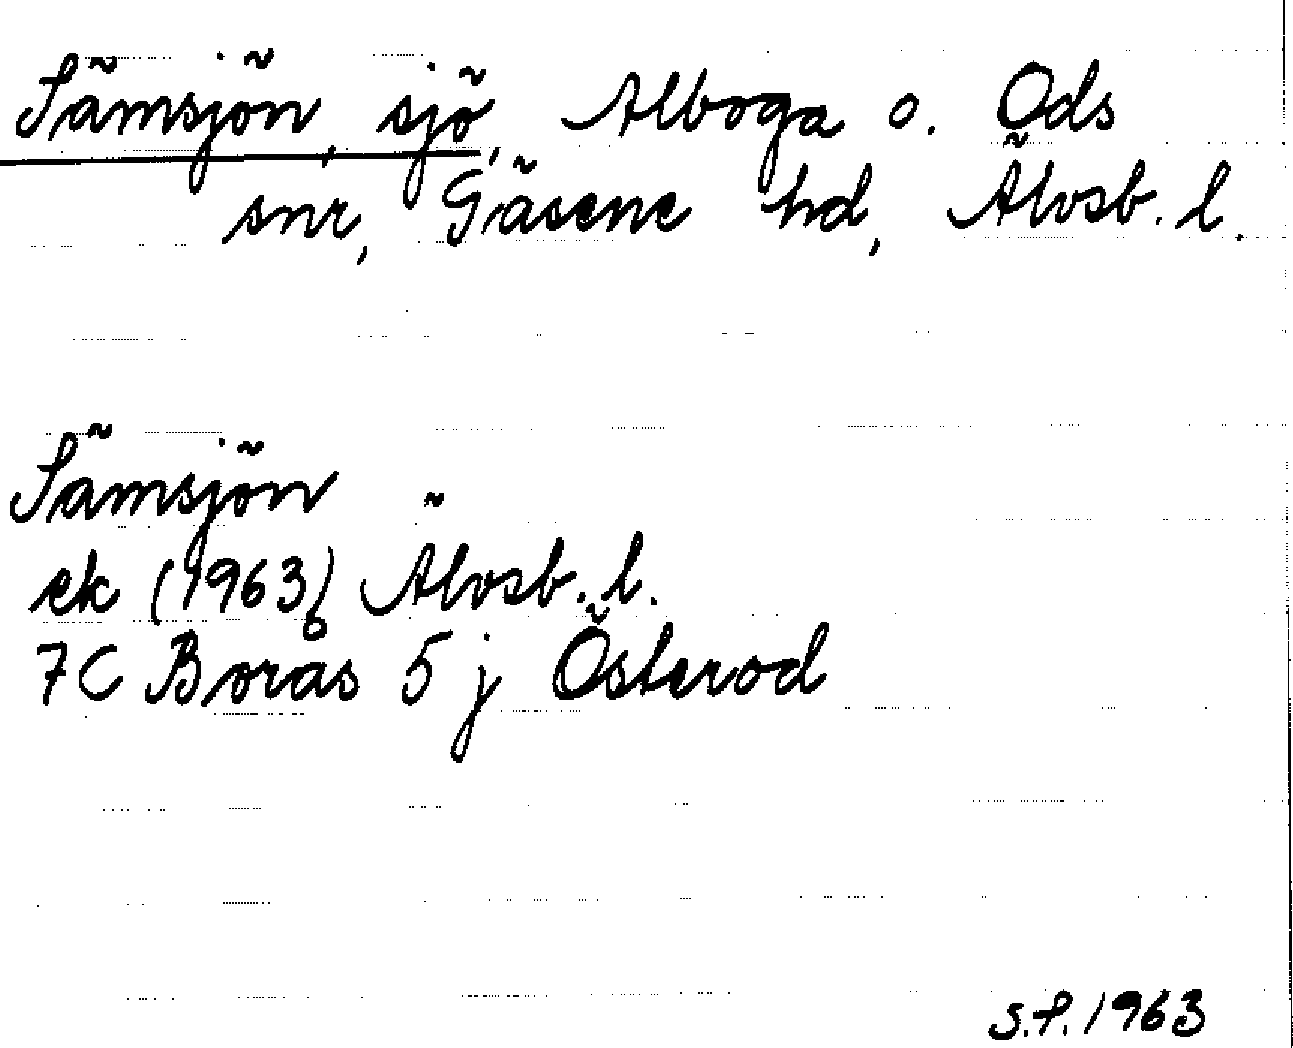 Sämsjön, sjö, Alboga o. Ods
snr, Gäsene hd, Älvsb. l.
Sämsjön
ek (1963) Älvsb. l.
7C Borås 5 j Österod
S.F. 1963